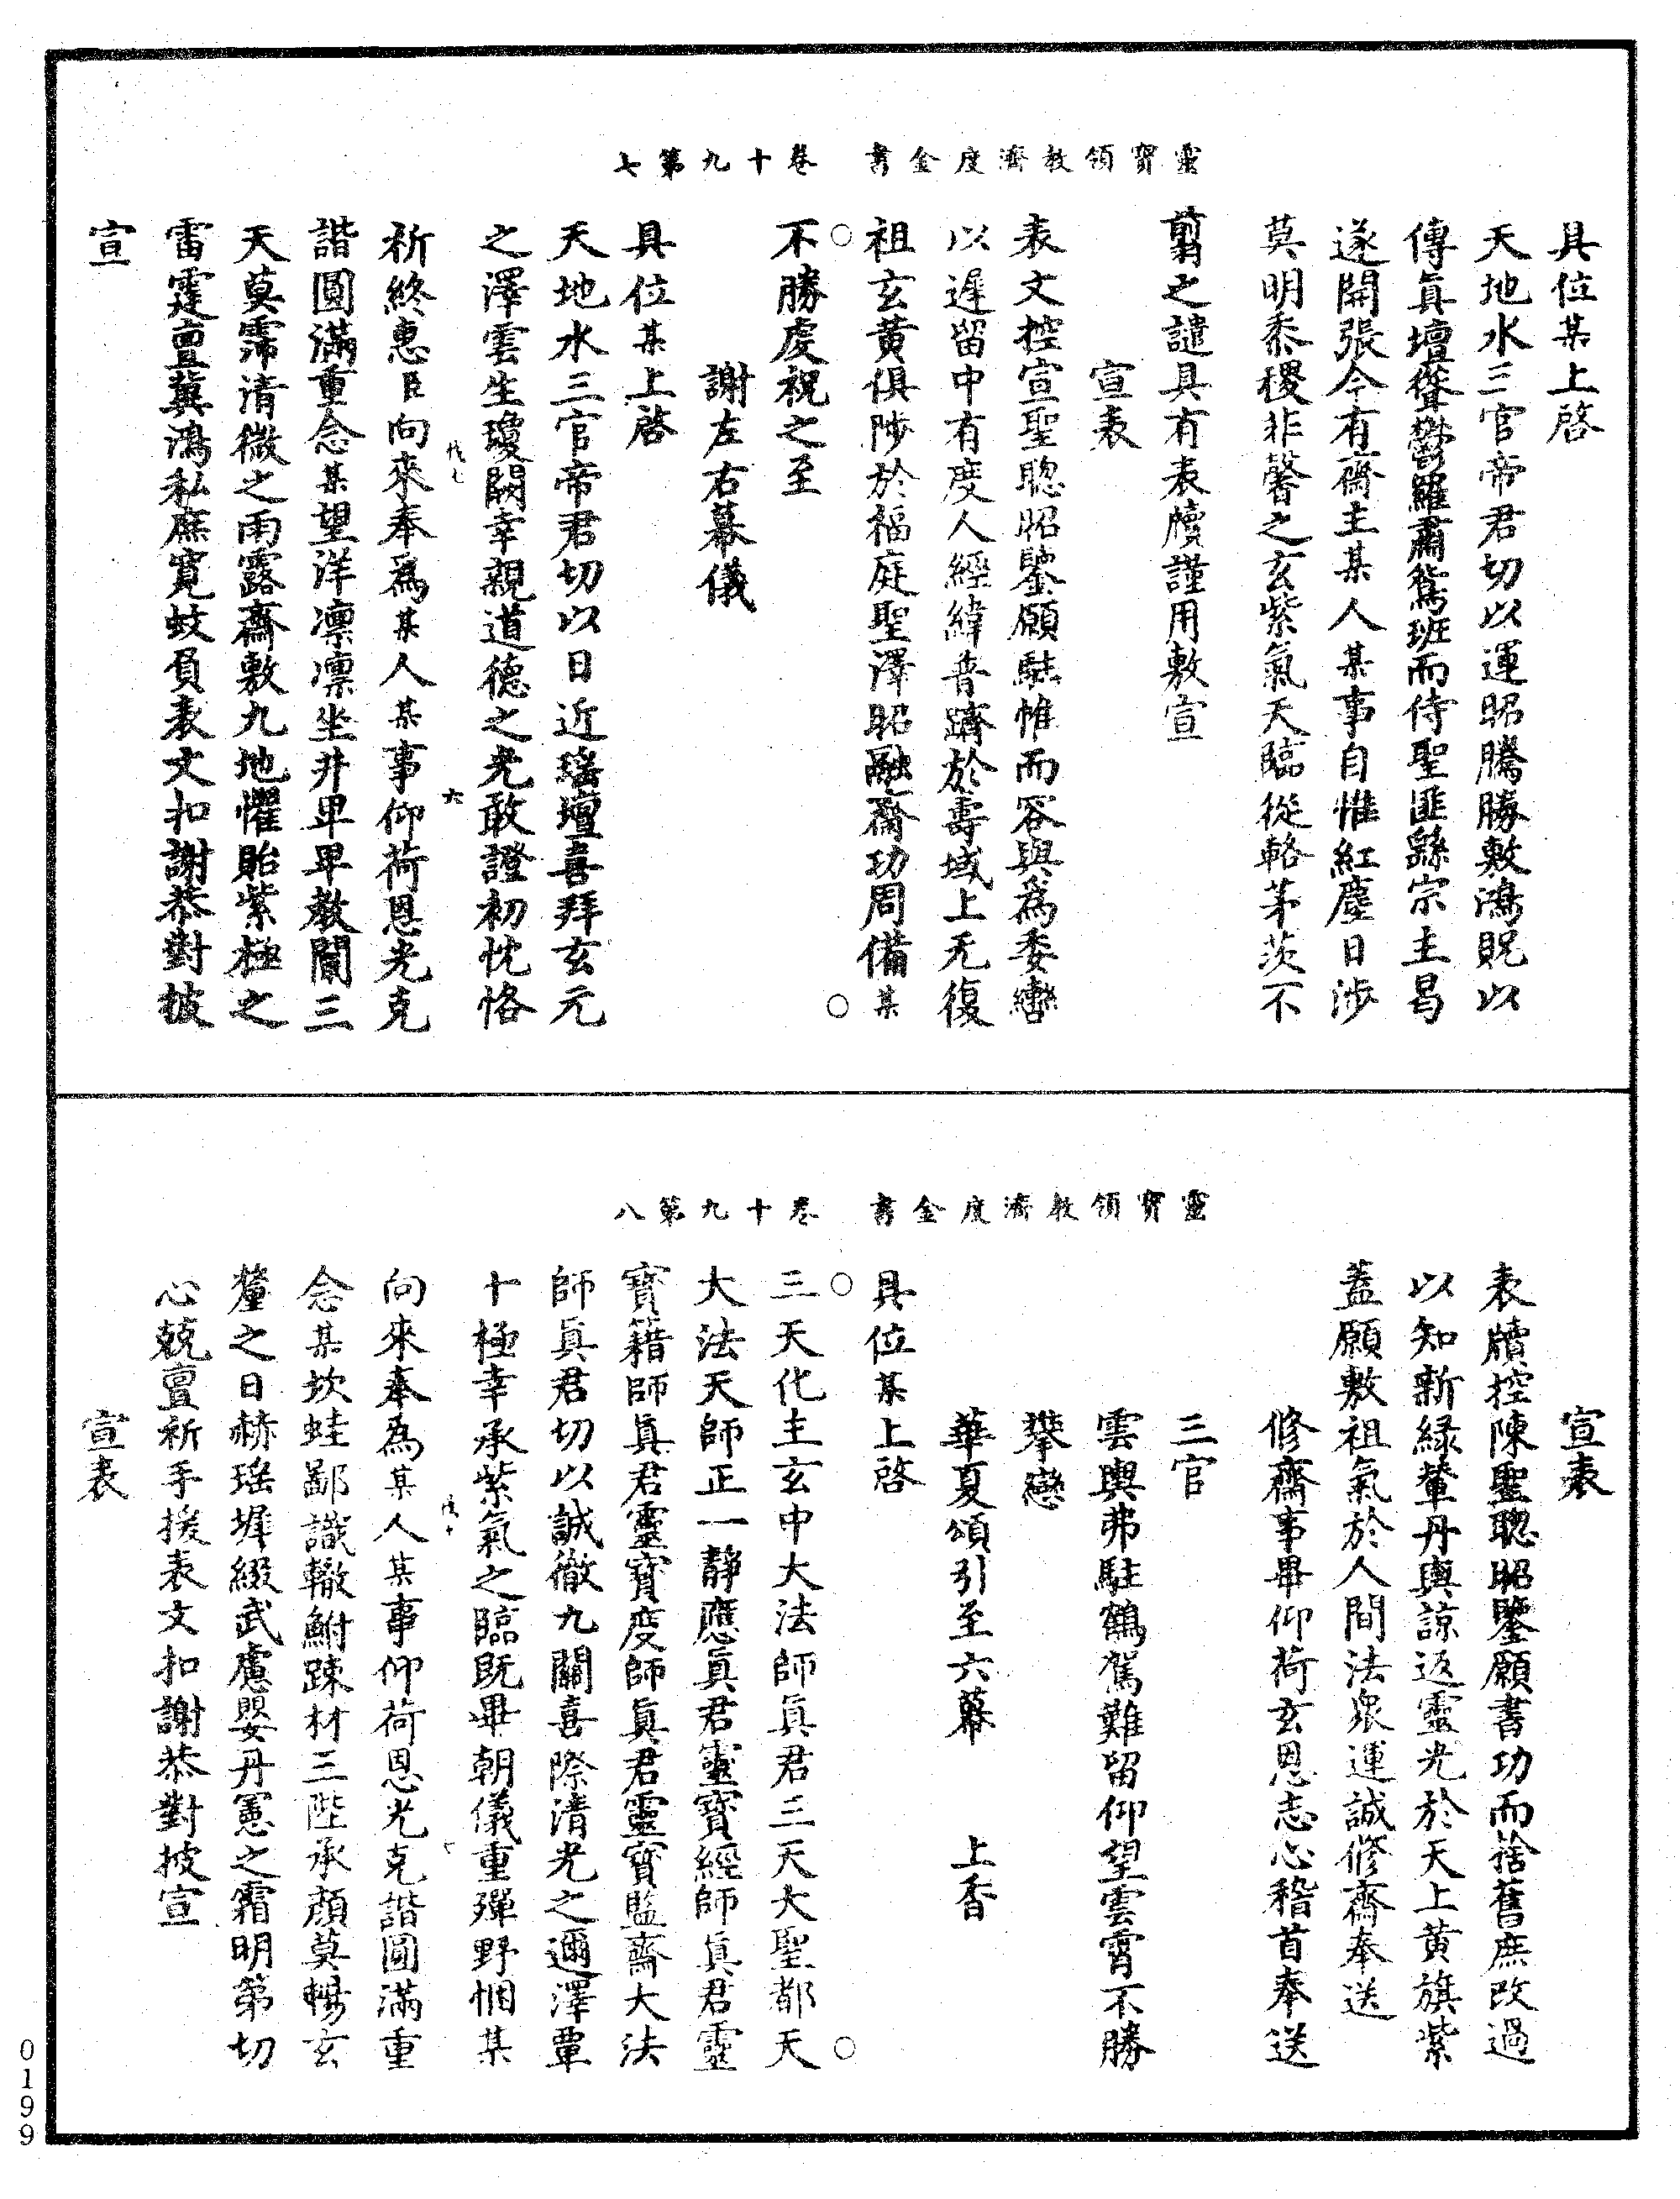 靈寶領教濟度金書 卷十九第七
具位某上啓
天地水三官帝君切以運昭騰勝敷鴻貺以
傳眞壇聳鬱羅肅鴛班而侍聖匪繇宗主曷
遂開張今有齋主某人某事自惟紅塵日涉
莫明黍稷非馨之玄紫氣天臨從輅茅茨不
翦之譴具有表牘謹用敷宣
宣表
表文控宣聖聰昭鑒願駐帷而容與爲委轡
以遲留中有度人經緯普躋於壽域上无復
祖玄黄俱陟於福庭聖澤昭融齋功周備某
不勝虔祝之至
謝左右幕儀
具位某上啓
天地水三官帝君切以日近瑤壇喜拜玄元
之澤雲生瓊闕幸親道德之光敢證初忱恪
祈終惠臣向來奉爲某人某事仰荷恩光克
諧圓滿重念某望洋凛凛坐井卑卑教闡三
天莫霈清微之雨露齋敷九地懼貽紫極之
雷霆亶冀鴻私庶寬蚊負表文扣謝恭對披
宣
靈寶領教濟度金書 卷十九第八
宣表
表牘控陳聖聰昭鑒願書功而捨舊庶改過
以知新緑輦丹輿諒返靈光於天上黄旗紫
蓋願敷祖氣於人間法衆運誠修齋奉送
修齋事畢仰荷玄恩志心稽首奉送
三官
雲輿弗駐鶴駕難留仰望雲霄不勝
攀戀
華夏頌引至六幕 上香
具位某上啓
三天化主玄中大法師眞君三天大聖都天
大法天師正一靜應眞君靈寶經師眞君靈
寶籍師眞君靈寶度師眞君靈寶監齋大法
師眞君切以誠徹九關喜際清光之邇澤覃
十極幸承紫氣之臨既畢朝儀重殫野悃某
向來奉為某人某事仰荷恩光克諧圓滿重
念某坎蛙鄙識轍鮒踈材三陛承顏莫暢玄
釐之日赫瑤墀綴武慮嬰丹憲之霜明第切
心兢亶祈手援表文扣謝恭對披宣
宣表
0199